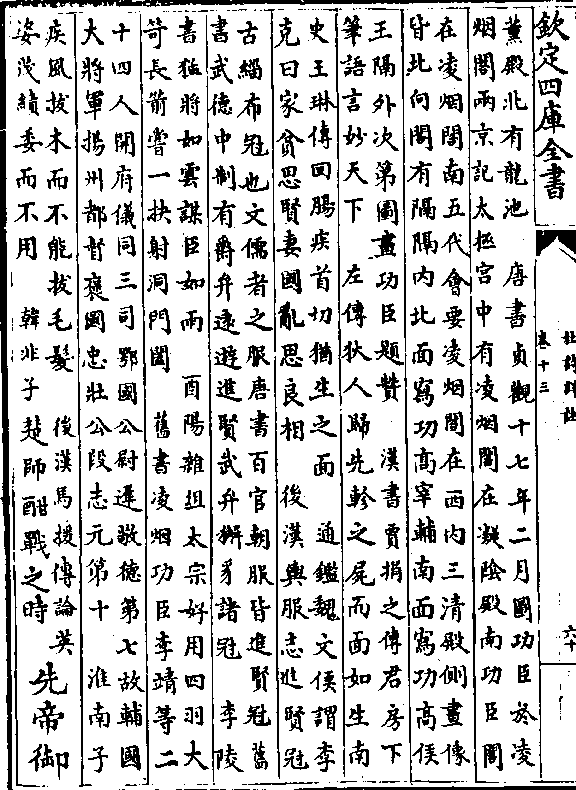 欽定四庫全書
杜詩詳註
卷十三
六十
薰殿北有龍池　唐書貞觀十七年二月圖功臣於凌
烟閣兩京記太極宮中有凌烟閣在凝陰殿南功臣閣
在凌烟閣南五代會要凌烟閣在西内三清殿側畫像
皆北向閣有隔隔内北面寫功髙宰輔南面寫功髙侯
王隔外次第圖畫功臣題贊　漢書賈捐之傳君房下
筆語言妙天下　左傳狄人歸先軫之屍而面如生南
史王琳傳回腸疾首切猶生之面　通鑑魏文侯謂李
克曰家貧思賢妻國亂思良相　後漢輿服志進賢冠
古緇布冠也文儒者之服唐書百官朝服皆進賢冠舊
書武德中制有爵弁逺遊進賢武弁獬豸諸冠　李陵
書猛將如雲謀臣如雨　酉陽雜俎太宗好用四羽大
笴長箭嘗一抉射洞門闔　舊書凌烟功臣李靖等二
十四人開府儀同三司鄂國公尉遲敬德第七故輔國
大將軍揚州都督褒國忠壯公段志元第十　淮南子
疾風拔木而不能拔毛髮　後漢馬援傳論英
姿茂績委而不用　韓非子楚師酣戰之時
先帝御